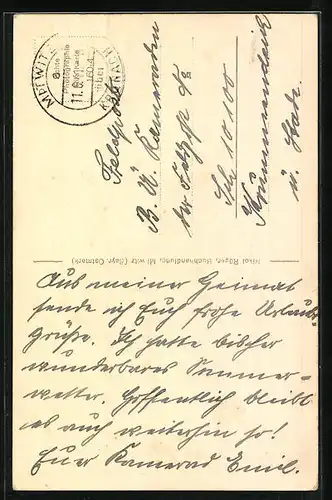 MITWITZ
über
KRONACH
11.6.
Feldpost
B. W. Kameraden
der Feldpost
10100
Krummendeich
ü. Stade.
Nikol Rüger, Buchhandlung, Mitwitz (Bayr. Ostmark)
Aus meiner Heimat
sende ich Euch frohe Urlaubs-
grüße. Ich hatte bisher
wunderbares Sommer-
wetter. Hoffentlich bleibt
es auch weiterhin so!
Euer Kamerad Emil.